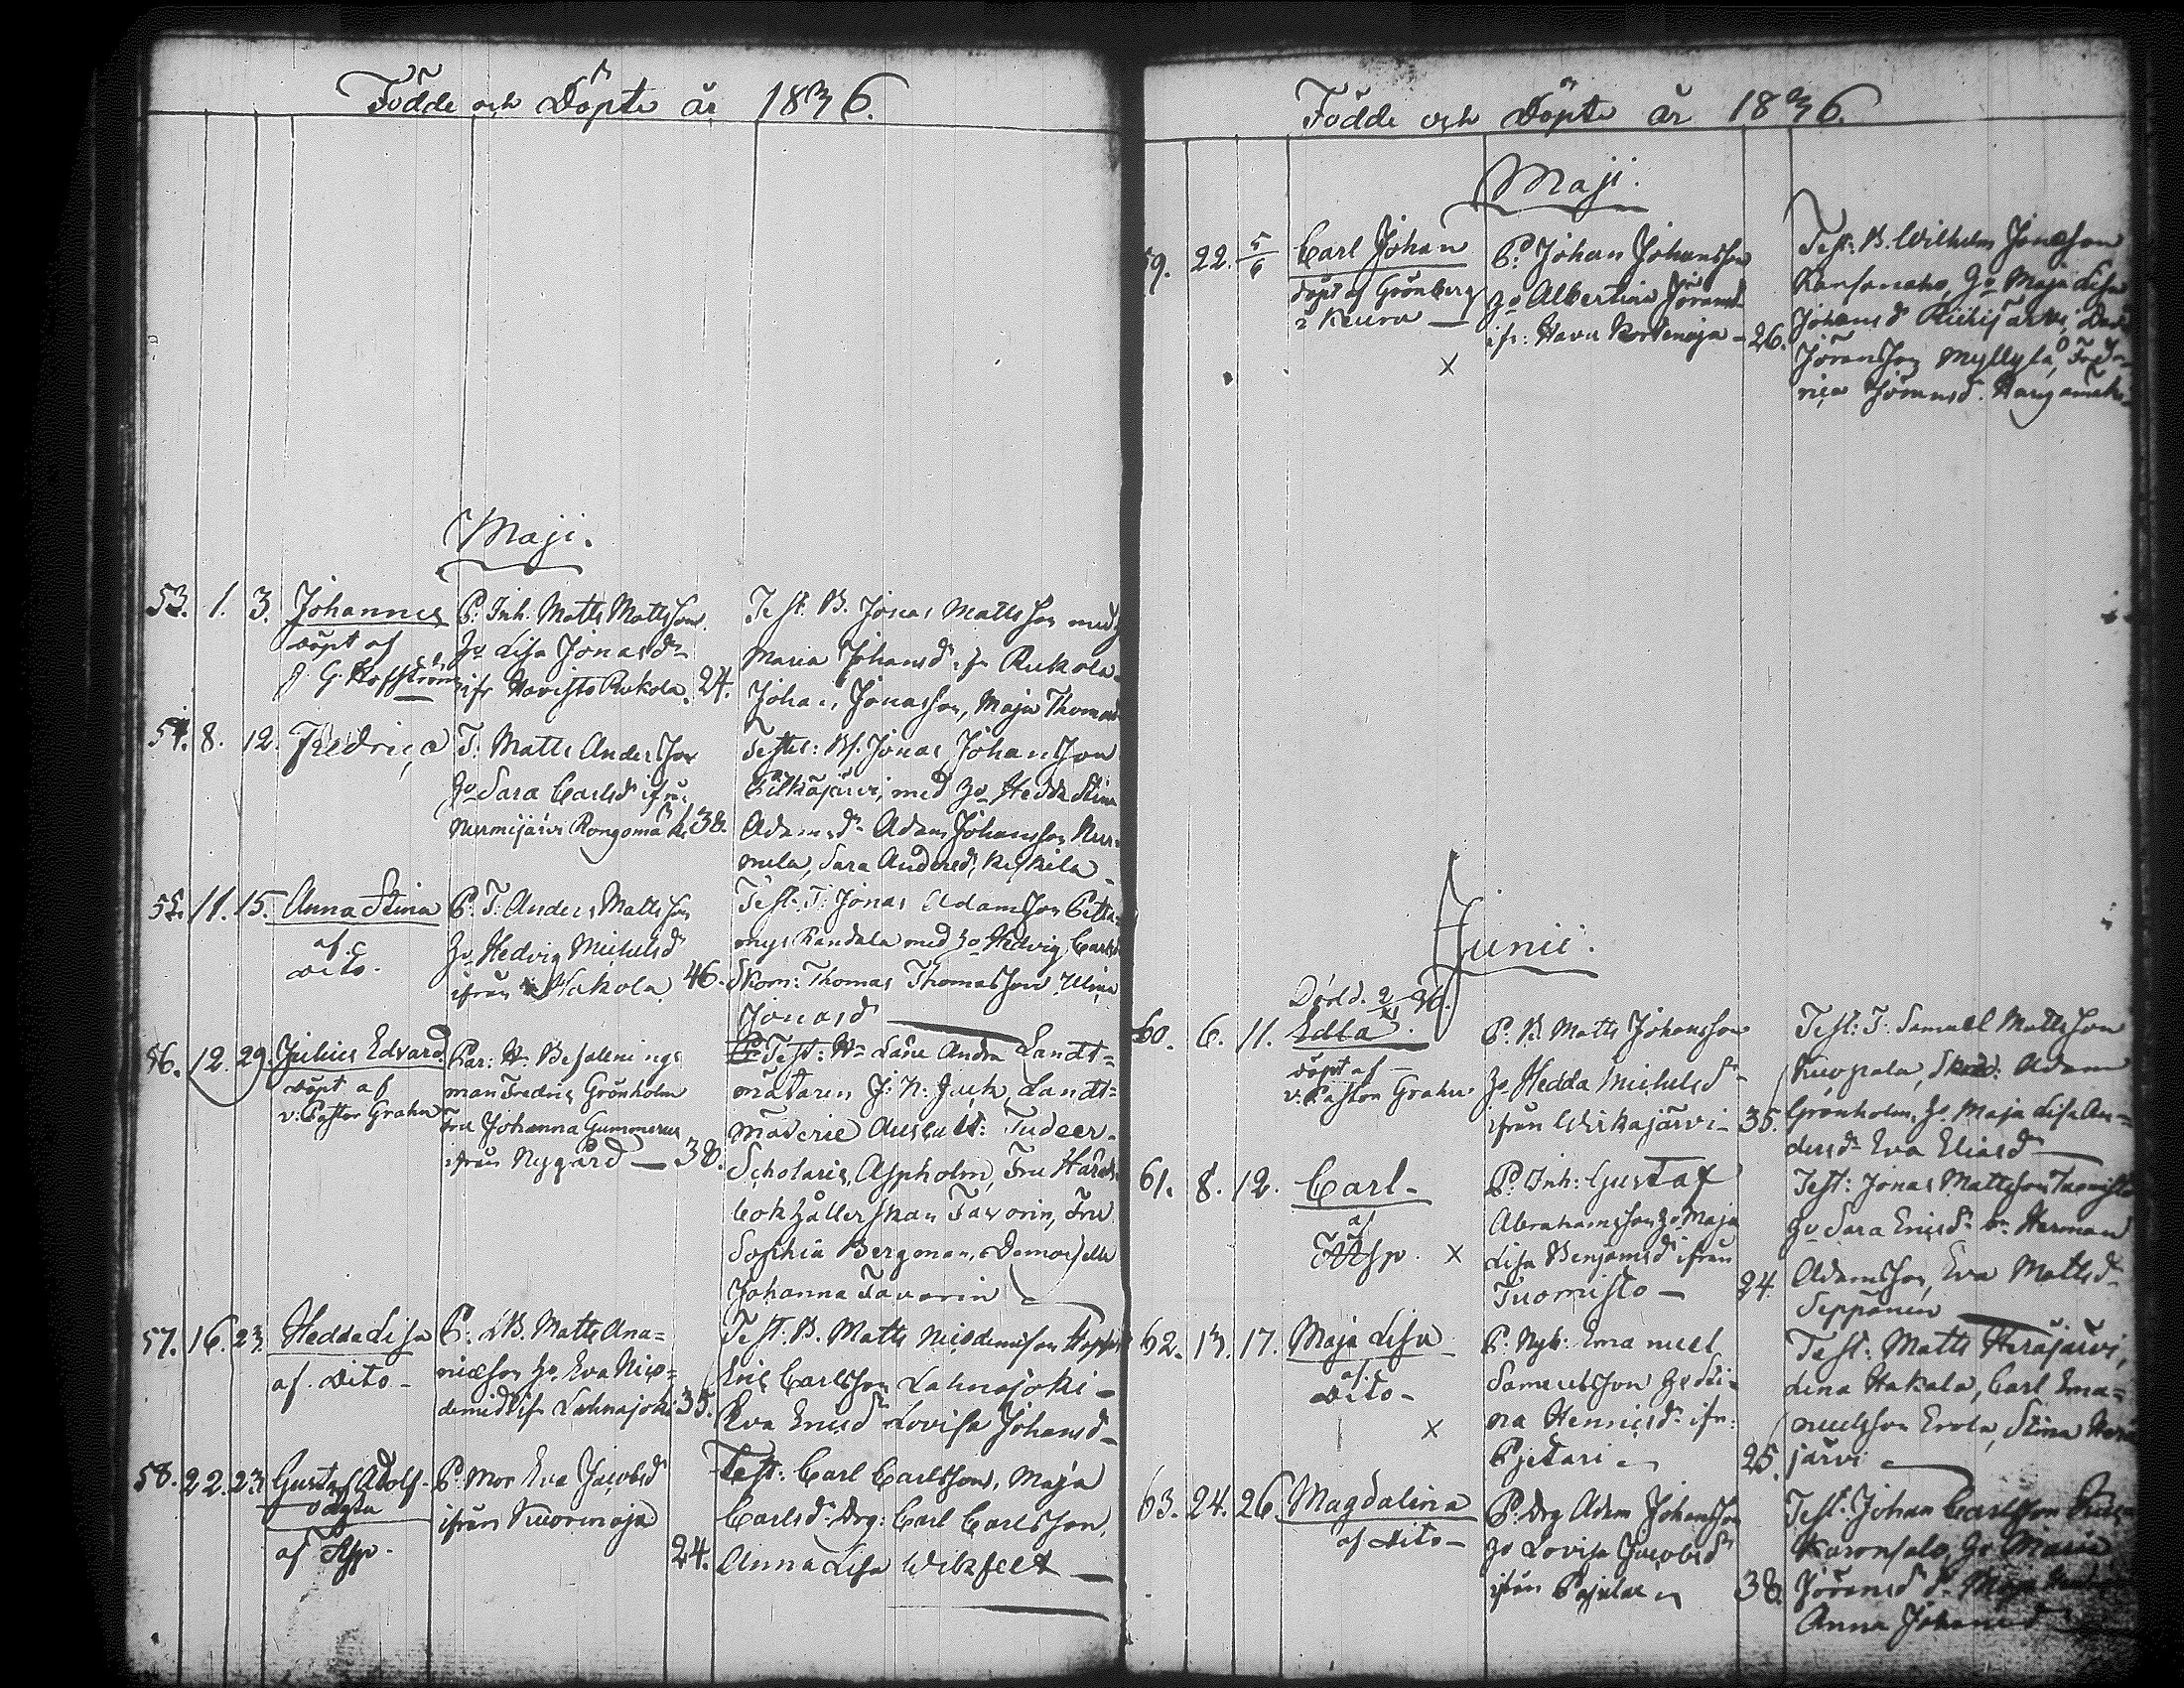 Födde och Döpte år 1836.
Maji.
53. 1. 3. Johannes
döpt af
J. G. Hofström
P: Inh. Matts Mattsson
Ho Lisa Jonasdr
ifr Havisto Rukola. 24.
Test. B. Jonas Mattsson med
Maria Johansdr ifr Rukola
Johan Jonasson, Maja Thomasd
54. 8. 12. Fredrica
T: Matts Andersson
Ho Sara Carlsdr ifrn
Nurmijärvi Rongomäki 38.
Testes: Bf. Jonas Johansson
med Ho Hedda Stina
Adamsdr Adam Johansson Nur=
mela, Sara Andersdr Keskila
55. 11. 15. Anna Stina
af
dito.
P. T. Anders Mattsson
Ho Hedvig Michelsdr
ifrån Hakola 46.
Test. T: Jonas Adamsson
Randala med Ho Hedvig Carlsd
Skom: Thomas Thomasson Ulrica
Jonasdr
56. 12. 29. Julius Edvard
döpt af
v: Pastor Grahn
Par: Hr Befallnings
man Fredric Grönholm
Fru Johanna Gummerus
ifrån Nygård — 38.
Test: Hr Andra Landt=
mätaren J: N: Juck, Landt=
mäterie Auscult: Tudeer.
Scholaris, Aspholm, Fru Härads
bokhållerskan Favorin, Fru
Sophia Bergman, Demoiselle
Johanna Favorin
57. 16. 23. Hedda Lisa
af dito -
P: LB. Matts Ana=
niæson Ho Eva Nico=
demidr ifr Lahnajoki 35.
Test: B. Matts Nicodemusson
Eric Carlsson Lahnajoki -
Eva Ericsdr Lovisa Johansdr
58. 22. 23. Gustaf Adolf
oägta
af Asp -
P: Mor Eva Jacobsdr
ifrån Kuorinoja
24.
Test: Carl Carlsson, Maja
Carlsdr Drg: Carl Carlsson,
Anna Lisa Wikfelt —
Födde och Döpte år 1836.
Maji.
59. 22. 5/6 Carl Johan
döpt af Grönberg
i Keuru —
P: Johan Johansson
Ho Albertina Jöransd
ifr: Havu Kortenoja - 26.
Test: B. Wilhelm Jonasson
Kansanaho, Ho Maja Lisa
Johansdr
Jöransson Myllylä, Fred=
rica Jöransdr. Harjamäki
Junii.
Död d. 36.
60. 6. 11. Edla
döpt af -
v: Pastor Grahn
P: B. Matts Johansson
Ho Hedda Michelsdr
ifrån Wirkajärvi - 35.
Test: T: Samuel Mattsson
Kuopala, Adam
Grönholm, Ho Maja Lisa An=
dersdr Eva Eliasdr
61. 8. 12. Carl -
af
Asp. x
P: Inh: Gustaf
Abrahamsson Ho Maja
Lisa Benjamsdr ifrån
Tuomisto — 24
Test: Jonas Mattsson Tuomisto
Ho Sara Ericsdr Herman
Adamsson, Eva Mattsdr
Seppänen
62. 13. 17. Maja Lisa
af
dito -
x
P: Nyb: Emanuel
Samuelsson Ho Sti=
na Henricsdr ifr:
Pjetari 25.
Test: Matts Heräjärvi,
Lina Hakala, Carl Ema=
nuelsson Erola, Stina Herä
järvi
63. 24. 26. Magdalina
af dito -
P: Drg Adam Johansson
Ho Lovisa Jacobsdr
ifrån 38.
Test: Johan Carlsson
Karonsalo, Ho Maria
Jöransdr
Anna Johansd